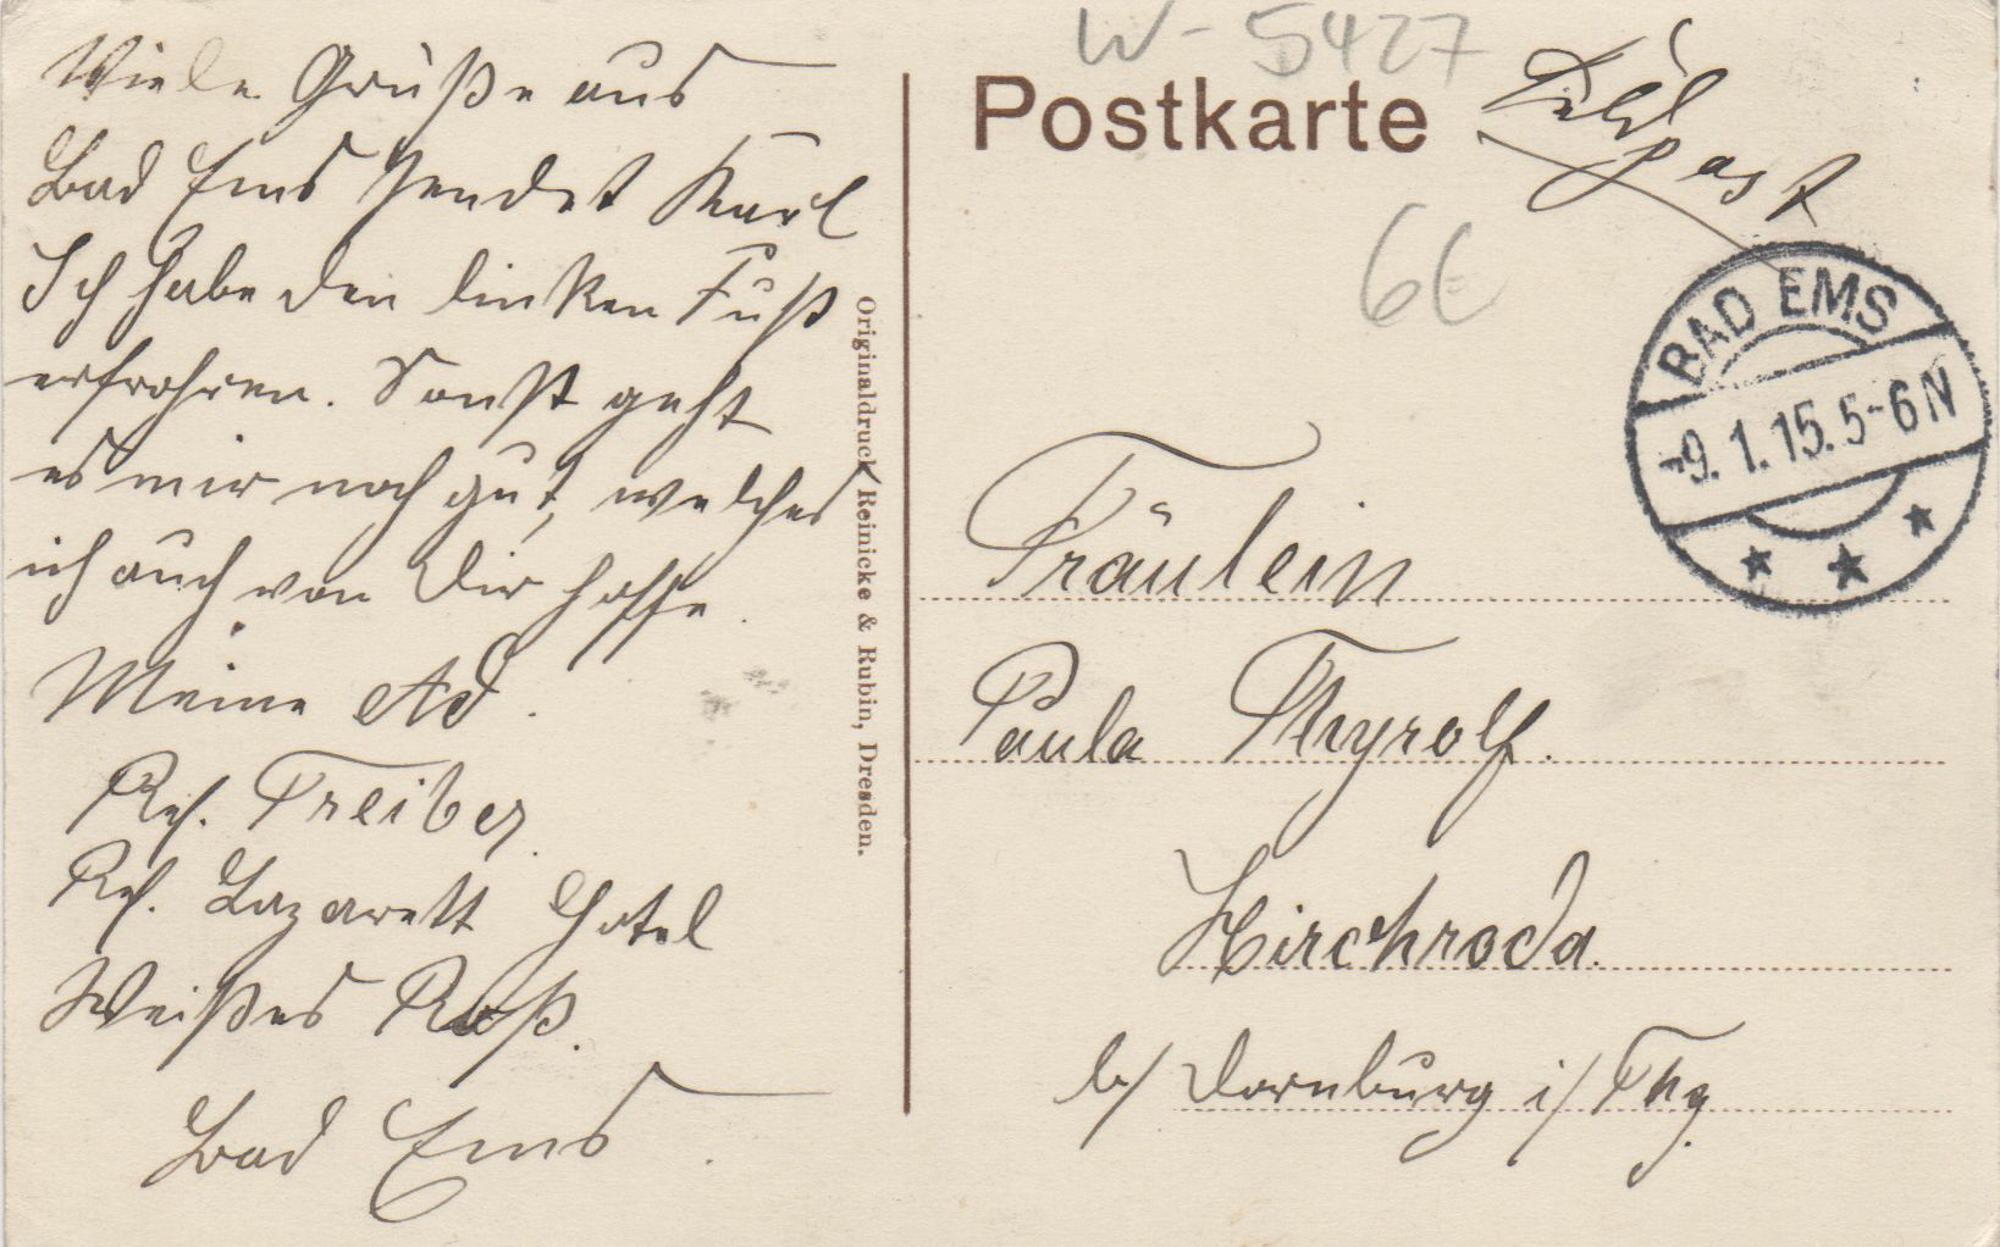 Viele Grüße aus
Bad Ems sendet Karl
Ich habe den linken Fuß
erfrohren. Sonst geht
es mir noch gut, welches
ich auch von Dir hoffe.
Meine Ad.
Res. Treiber.
Res. Lazarett Hotel
Weißes Roß.
Bad Ems.
Originaldruck Reinicke & Rubin, Dresden.
W-5427
Postkarte
Feld
post
6€
BAD EMS
-9.1.15.5-6N
Fräulein
Paula Thyrolf.
Hirchroda.
b/ Dornburg i/Thg.